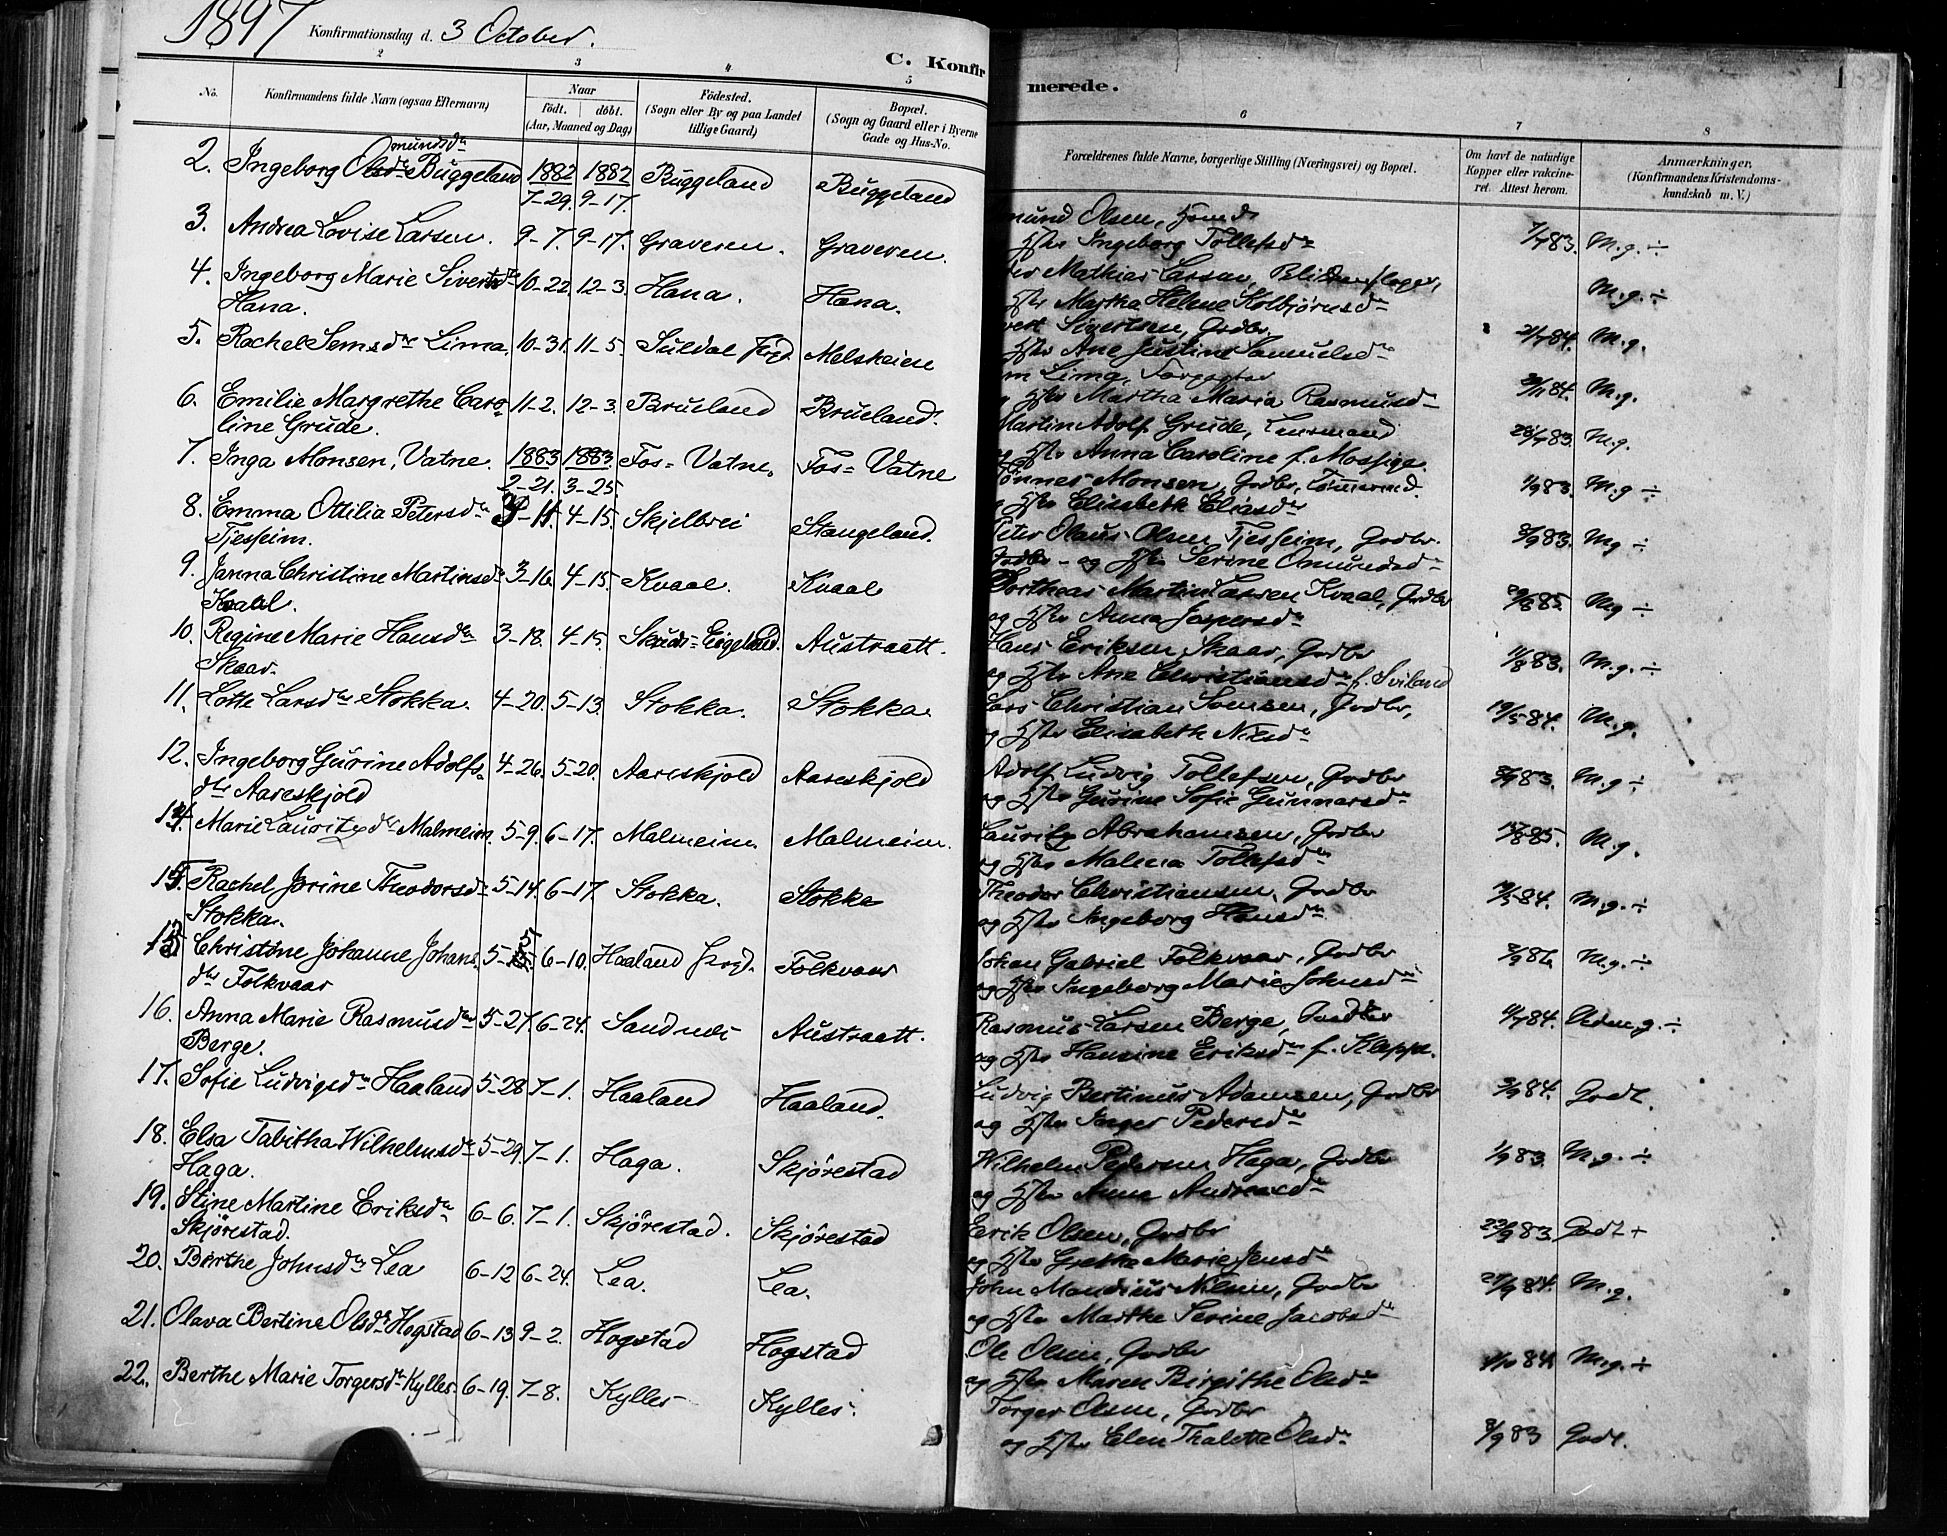 1897 Konfirmationsdag d. 3 October.
C. Konfirmerede.
2 3 4 5 6 7 8
No.
Konfirmandens fulde Navn (ogsaa Efternavn)
Naar
födt. döbt.
(Aar, Maaned og Dag)
Födested.
(Sogn eller By og paa Landet
tillige Gaard)
Bopæl.
(Sogn og Gaard eller i Byerne
Gade og Hus-No.
Forældrenes fulde Navne, borgerlige Stilling (Næringsvei) og Bopæl.
Om havt de naturlige
Kopper eller vakcine-
ret. Attest herom.
Anmærkninger.
(Konfirmandens Kristendoms-
kundskab m. V.)
2. Ingeborg Omundsd. Buggeland 1882 1882 Buggeland Buggeland
7-29. 9-17.
mund Olsen,
og Hstr Ingeborg Tollefsdr 83. M.g. ÷
3. Andrea Lovise Larsen. 9-7. 9-17. Graveren. Graveren.
Mathias Larsen,
Hstr Martha Helene Kolbjørnsdr M.g. ÷
4. Ingeborg Marie Sivertsdr 10-22. 12-3. Hana. Hana.
Hana.
Sivertsen, Grdbr,
Hstr Ane Justine Samuelsdr 84. M.g.
5. Rachel Semsdr Lima. 10-31. 11-5. Suldal Prgd. Melskeien
Lima,
Hstr Martha Maria Rasmusdr 84. M.g.
6. Emilie Margrethe Caro- 11-2. 12-3. Brueland Brueland.
line Grude.
Martin Adolf Grude, Lensmand
og Hstr Anna Caroline f. Mossige 83. M.g.
7. Inga Monsen, Vatne. 1883 1883. Fos=Vatne. Fos=Vatne
2-21. 3-25.
Tönnes Monsen, Grdbr,
og Hstr Elisabeth Eliasdr 83. M.g ÷
8. Emma Otilia Petersdr 3-11. 4-15. Skjelbrei Stangeland.
Tjesseim.
Peter Olaus Olsen Tjesseim, Grdbr.
og Hstr Serine Omundsdr 83. Mg ÷
9. Janna Christine Martinsdr 3-16. 4-15. Kvaal. Kvaal
Kvaal.
Dortheus Martin Larsen Kvaal, Grdbr
og Hstr Anna Jaspersdr 85. Mg ÷
10. Regine Marie Hansdr 3-18. 4-15. Skuds=Eigeland. Austraatt.
Skaar.
Hans Eriksen Skaar, Grdbr
og Hstr Ane Christiansdr f. Sviland 11/8 83. M.g. ÷
11. Lotte Larsdr Stokka. 4-20. 5-13. Stokka. Stokka.
Lars Christian Samsen, Grdbr,
og Hstr Elisabeth Nilsdr 19/5 84. M.g.
12. Ingeborg Gurine Adolfs- 4-26. 5-20. Aareskjold Aareskjold
dtr Aareskjold
Adolf Ludvig Tollefsen, Grdbr
og Hstr Gurine Sofie Gunnarsdr 83. M.g ÷
14. Marie Lauritzdr Malmeim. 5-9. 6-17. Malmeim. Malmeim.
Lauritz Abrahamsen, Grdbr
og Hstr Malena Tollefsdr 85. M.g.
15. Rachel Jorine Theodorsdr 5-14. 6-17. Stokka. Stokka
Stokka.
Theodor Christiansen, Grdbr
og Hstr Ingeborg Hansdr 84. M.g. ÷
13 Christine Johanne Johans- 5-5 6-10. Haaland Prgd. Folkvaar
dtr Folkvaar
Johan Gabriel Folkvaar, Grdbr
og Hstr Ingeborg Marie Johnsdr M.g. ÷
16. Anna Marie Rasmusdr 5-27. 6-24. Sandnes Austraatt.
Berge.
Rasmus Larsen Berge, Grdbr
og Hstr Hansine Eriksdr f. Klepp. 84. M.g. ÷
17. Sofie Ludvigsdr Haaland 5-28 7-1. Haaland Haaland.
Ludvig Bertinus Adamsen, Grdbr
og Hstr Inger Pedersdr 84. Godt.
18. Elsa Tabitha Wilhelmsdr 5-29. 7-1. Haga. Skjørestad
Haga.
Wilhelm Pedersen Haga, Grdbr
og Hstr Anna Andreasdr 83. M.g. ÷
19. Stine Martine Eriksdr 6-6. 7-1. Skjørestad. Skjørestad
Skjørestad.
Erik Olsen, Grdbr
og Hstr Grethe Marie Jensdr 23/9 83. Godt +
20. Berthe Johnsdr Lea 6-12 6-24. Lea. Lea.
John Mandius Nilsen, Grdbr
og Hstr Marthe Serine Jacobsdr 84. M.g.
21. Olava Bertine Olsdr Hogstad 6-13 9-2. Hogstad Hogstad
Ole Olsen, Grdbr
og Hstr Maren Birgithe Olsdr 84. M.g. ÷
22. Berthe Marie Torgersdr Kylles 6-19. 7-8. Kylles Kylles.
Torger Olsen, Grdbr
og Hstr Elen Thalette Olsdr 8/9 83 Godt.